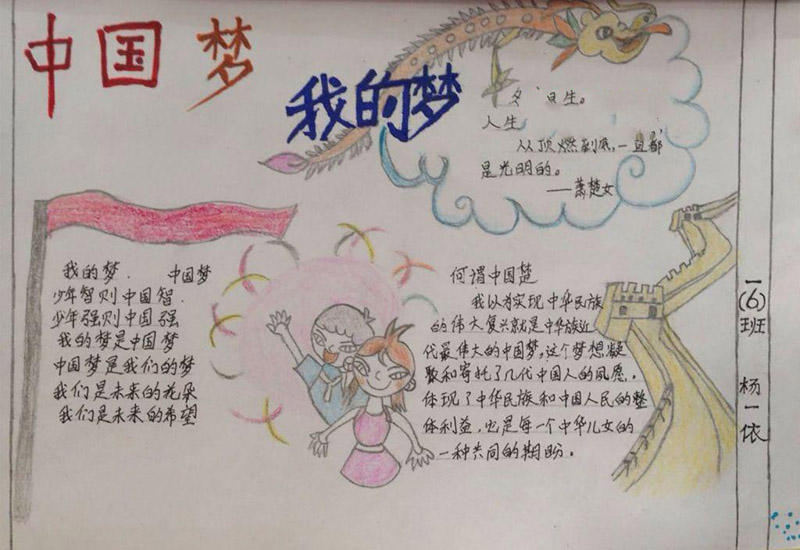 中国梦
我的梦
人生
从顶燃到底,一直都
是光明的。
——萧楚女
我的梦. 中国梦
少年智则中国智
少年强则中国强
我的梦是中国梦
中国梦是我们的梦
我们是未来的花朵
我们是未来的希望
何谓中国楚
我以为实现中华民族
的伟大复兴就是中华族近
代最伟大的中国梦,这个梦想凝
聚和寄托了几代中国人的夙愿.
体现了中华民族和中国人民的整
体利益,也是每一个中华儿女的
一种共同的期盼.
一(6)班
杨一依